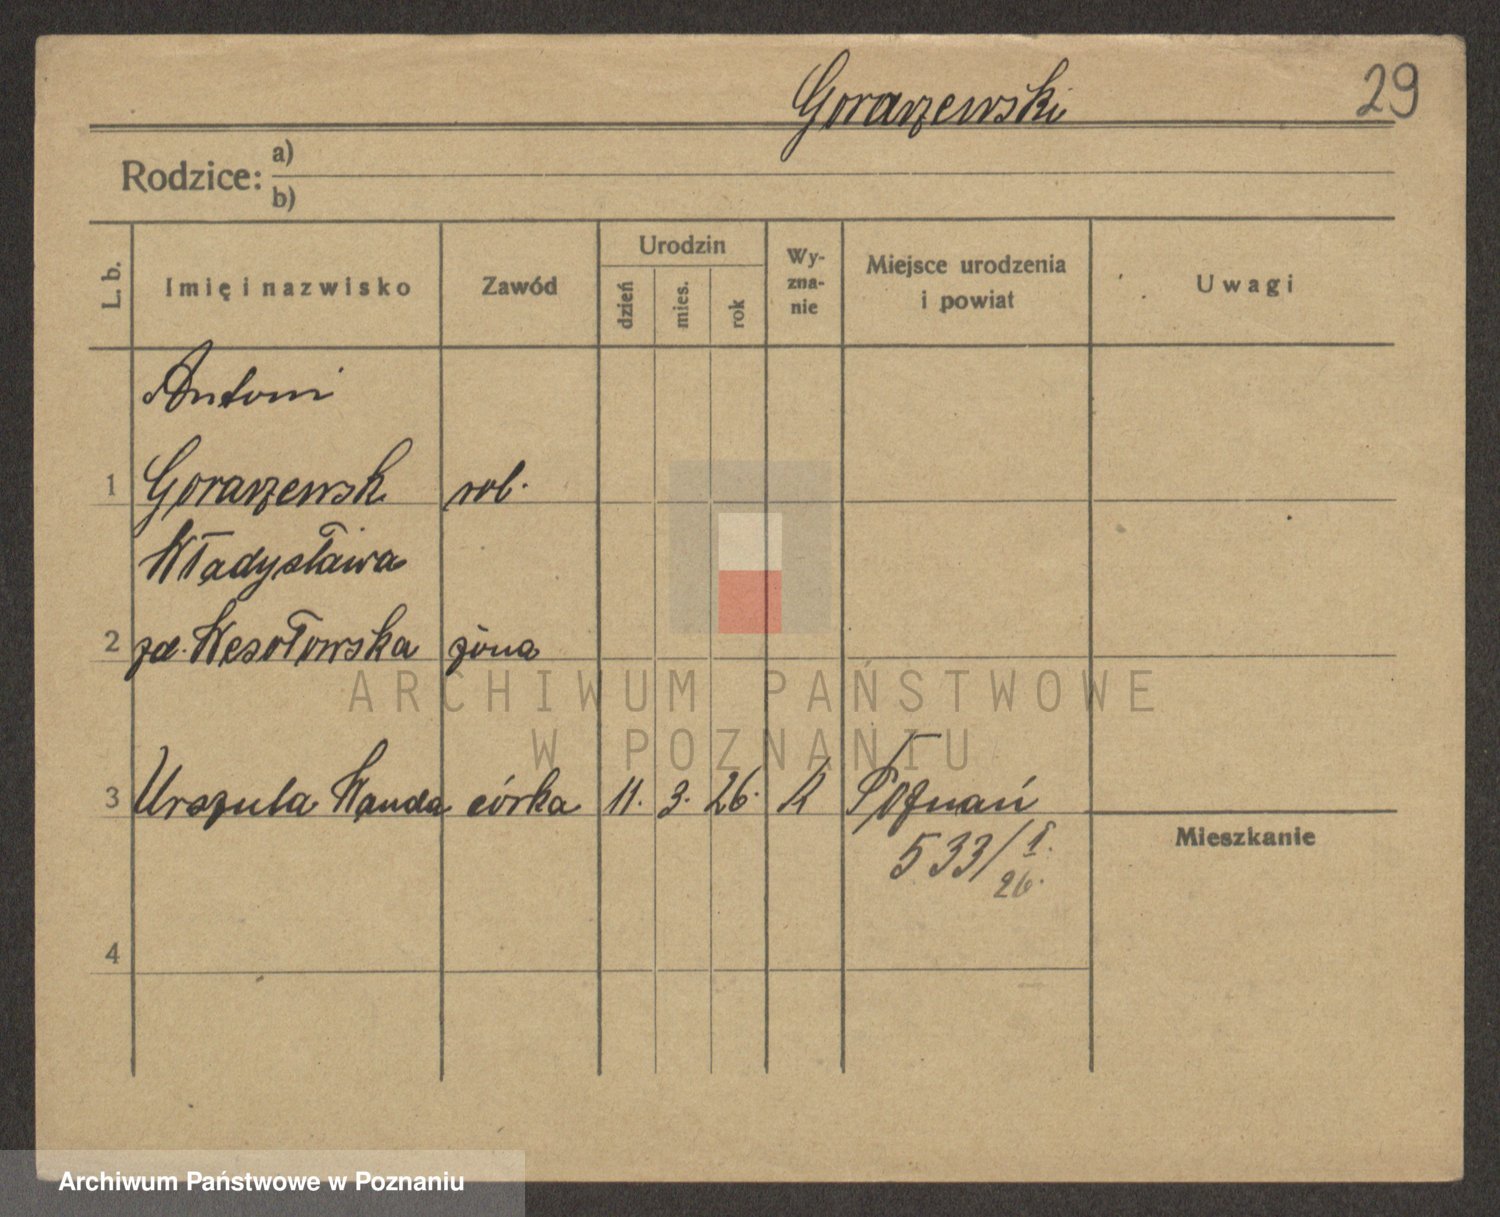 Gorarzewski
29
Rodzice: a)
b)
L. b.
Imię i nazwisko
Zawód
Urodzin
dzień
mies.
rok
Wy-
zna-
nie
Miejsce urodzenia
i powiat
Uwagi
Antoni
1 Gorarzewsk rob.
Władysława
2 zd. Wesołowska żona
ARCHIWUM PAŃSTWOWE
W POZNANIU
3 Urszula Wanda córka 11. 3. 26. R Poznań
533/I.
26.
Mieszkanie
4
Archiwum Państwowe w Poznaniu